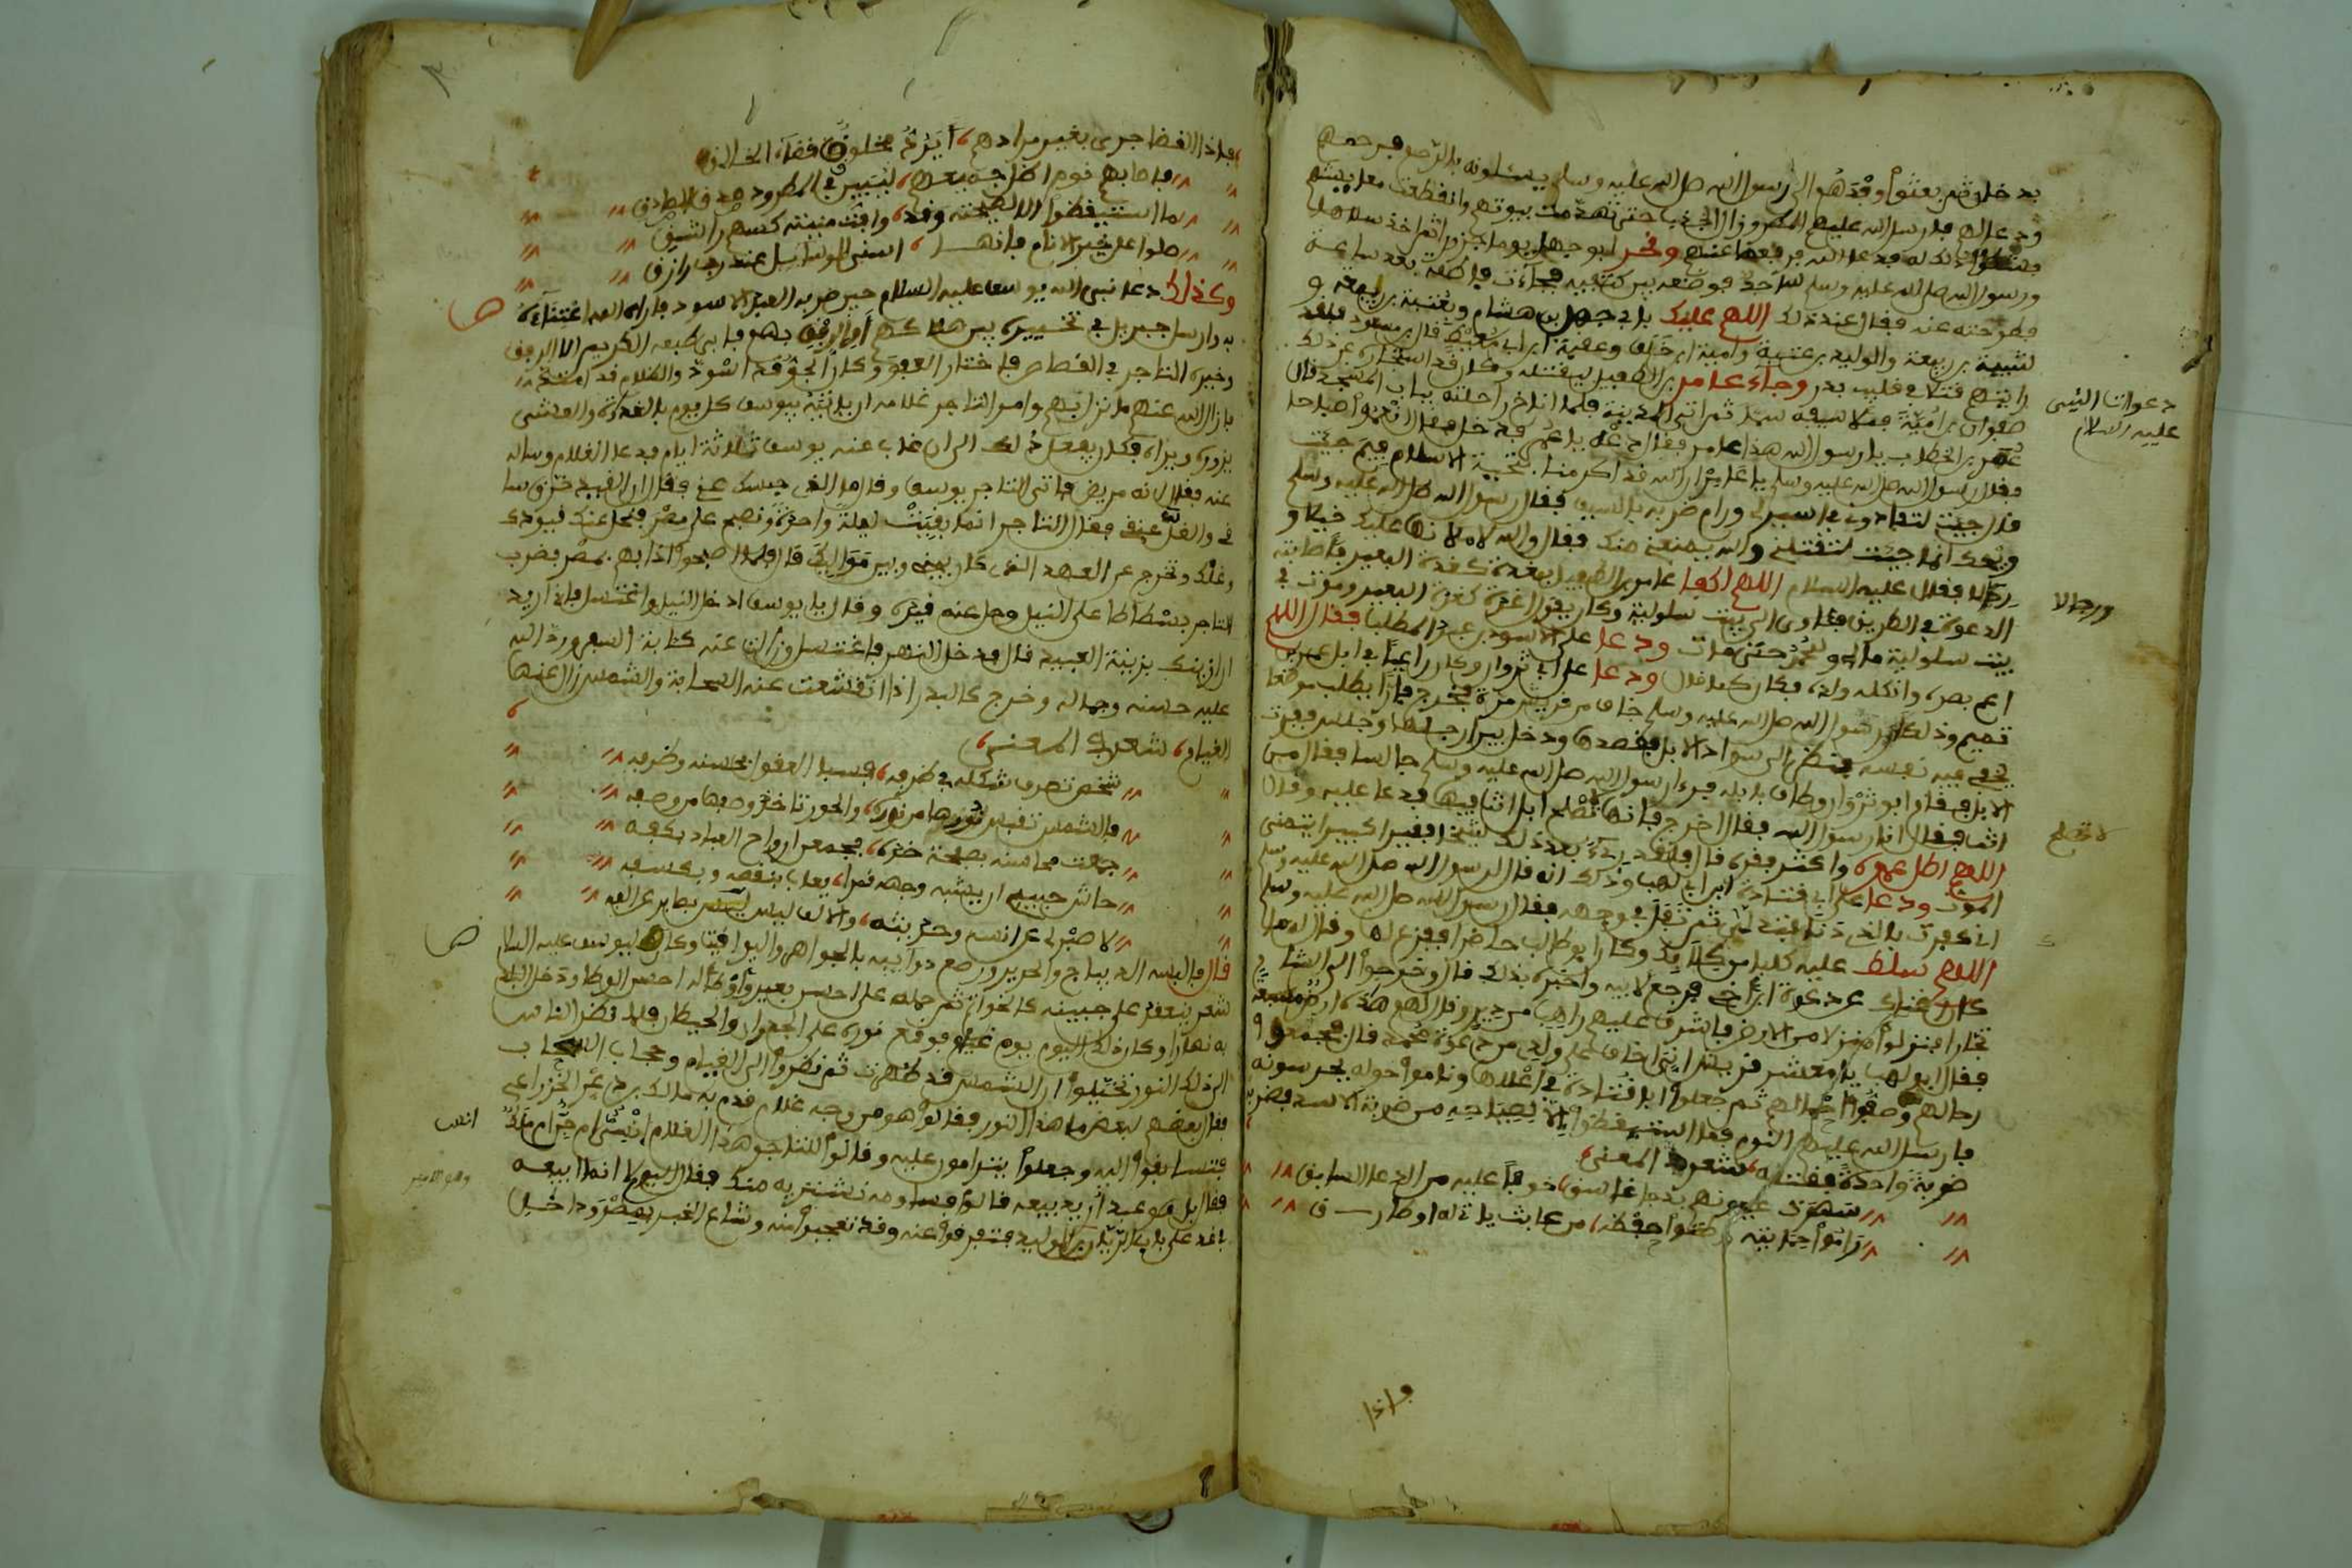 بدخان ثم بعثوا وفدهم الى رسول الله صلى الله عليه وسلم يسئلونه بالرحم فرحمهم
ودعا لهم فارسل الله عليهم المطر وزال الجدب حتى تهدمت بيوتهم وانقطعت معايشهم
فشكوا ذلك له فدعا الله فرفعها عنهم ونحر ابو جهل يوما جزورا ثم اخذ سلاها
ورسول الله صلى الله عليه وسلم ساجد فوضعه بين كتفيه فجاءت فاطمة بعد ساعة
فطرحته عنه فقال عند ذلك اللهم عليك بابي جهل بن هشام وعتبة بن ربيعة و
شيبة بن ربيعة والوليد بن عتبة وامية بن خلف وعقبة بن ابي معيط قال ابن مسعود فلقد
رايتهم قتلا في قليب بدر وجاء عامر بن الطفيل ليقتله وكان قد استجاره عن ذلك
صفوان بن امية فسلا سيفه ثم اتى المدينة فلما اناخ راحلته بباب المسجد قال
عمر بن الخطاب يا رسول الله هذا عامر فقال دعه يا عمر فدخل فقال انعموا صباحا
فقال رسول الله صلى الله عليه وسلم يا عامر ان الله قد اكرمنا بتحية الاسلام فيم جيت
قال جيت لتفادوني اسيرى ورام ضربه بالسيف فقال رسول الله صلى الله عليه وسلم
ويحك انما جيت لتقتلني والله يمنعني منك فقال والله لاملانها عليك خيلا و
رجالا فقال عليه السلام اللهم اكفنا عامر بن الطفيل بغدة كغدة البعير فاصابته
الدعوة في الطريق فاوى الى بيت سلولية وكان يقول اغدة كغدة البعير وموت في
بيت سلولية حتى مات ودعا على الاسود بن عبد المطلب فقال اللهم
اعم بصره واثكله ولده فكان كما قال ودعا على ابي ثروان وكان راعيا في ابل عمرو بن
تميم وذلك ان رسول الله صلى الله عليه وسلم خاف من قريش مرة فخرج فارا يطلب موضعا
يخفي فيه نفسه فنظر الى سواد الابل فقصدها ودخل بين ارجلها وجلس فنفرت
الابل فقام ابو ثروان وطاف بابله فراى رسول الله صلى الله عليه وسلم جالسا فقال من
انت فقال انا رسول الله فقال اخرج فانها تصلح ابل انت فيها فدعا عليه وقال
اللهم اطل عمره واكثر فقره قال فلقد بعد ذلك شيخا فقيرا كبيرا يتمنى
الموت ودعا على ابي قتادة ابن ابي لهب وذلك انه قال لرسول الله صلى الله عليه وسلم
اني كفرت بالذي دنا فتدلى ثم تفل في وجهه فقال رسول الله صلى الله عليه وسلم
اللهم سلط عليه كلبا من كلابك وكان ابو طالب حاضرا ففزع لها وقال له ما
كان اغناك عن دعوة ابن اخي فرجع لابيه واخبره بذلك قال وخرجوا الى الشام
تجارا فنزلوا منزلا من الارض فاشرف عليهم راهب من دير وقال لهم هذه ارض مسبعة
فقال ابو لهب يا معشر قريش اني اخاف على ولدي من دعوة محمد قال فجمعوا
رحالهم وصفوا احمالهم ثم جعلوا ابا قتادة في اعلاها وناموا حوله يحرسونه
فارسل الله عليهم النوم فما استيقظوا الا لصياحه من ضربة الاسد فضربه
ضربة واحدة فقتله شعر في المعنى
سهرت عيونهم بدجا غاسق خوفا عليه من الدعا السابق
راموا حمايته وظنوا حفظه من عابث ياتي له او طارق
واذا
دعوات النبي
عليه السلام
ورجالا
لا تصلح
فاذا القضا جرى بغير مرادهم ايرد مخلوق قضاء الخالق
فاصابهم نوم اظل جميعهم ليبين في المطرود صدق الصادق
ما استيقظوا الا لصيحته وقد وافت منيته كسهم راشق
صلوا على خير الانام فانها اسنى الوسائل عند رب رازق
وكذلك دعا نبي الله يوسف عليه السلام حين ضربه العبد الاسود فاراه الله اعتناءه
به وارسل جبريل في تخييره بين هلاكهم او الرفق بهم فابى طبعه الكريم الا الرفق
وخيره التاجر في القصاص فاختار العفو وكان الجو قد اسود والظلام قد امتد
فازال الله عنهم ما نزل بهم وامر التاجر غلامه ان ياتيه بيوسف كل يوم بالغداة والعشي
يزوره ويراه فكان يفعل ذلك الى ان غاب عنه يوسف ثلاثة ايام فدعا الغلام وساله
عنه فقال انه مريض فاتى التاجر يوسف وقال ما الذي حبسك عني فقال ان القيد خرق ساقي
والغل عنقي فقال التاجر انما بقيت ليلة واحدة ونصبح على مصر فنحل عنك قيودك
وغلك ونخرج عن العهد الذي كان بيني وبين مواليك قال فلما اصبحوا اذا هم بمصر فضرب
التاجر بسطاطا على النيل وحل عنه قيده وقال يا يوسف ادخل النيل واغتسل فاني اريد
ان ازينك بزينة العبيد قال فدخل النهر فاغتسل وزالت عنه كئابة السفر ورد الله
عليه حسنه وجماله وخرج كالبدر اذا تقشعت عنه السحابة والشمس زال عنها
الغيام شعر في المعنى
شخص تصرف شكله في طرفه فسبا العقول بحسنه وظرفه
فالشمس تقبس نورها من نوره والحور تاخذ وصفها من وصفه
جمعت محاسنه بصفحة خده فجمعن ارواح العباد بكفه
حاش جبينه ان يشبه وجهه قمرا يعاب بنقصه وبكسفه
لا صبر لي عن انسه وحديثه والالف ليس بصابر عن الفه
قال فالبسه الديباج والحرير ورصع ذوائبه بالجواهر واليواقيت وكان ليوسف عليه السلام
شعر ينعقد على جبينه كالخواتم ثم حمله على احسن بعير واوطا له احسن الوطا ودخل البلد
به نهارا وكان ذلك اليوم يوم غيم فوقع نوره على الجدران والحيطان فلما نظر الناس
الى ذلك النور تخيلوا ان الشمس قد ظهرت ثم نظروا الى الغيام وحجاب السحاب
فقال بعضهم لبعض ما هذا النور فقالوا هو من وجه غلام قدم به مالك بن ذعر الخزاعي
فتسابقوا اليه وجعلوا يتزامون عليه وقالوا للتاجر هذا الغلام
فقال بل هو عبد اريد بيعه قالوا فساومه نشتريه منك فقال اليوم لا انما ابيعه
غدا على باب الريان بن الوليد فتفرقوا عنه وقد تعجبوا منه وشاع الخبر بمصر وداخل